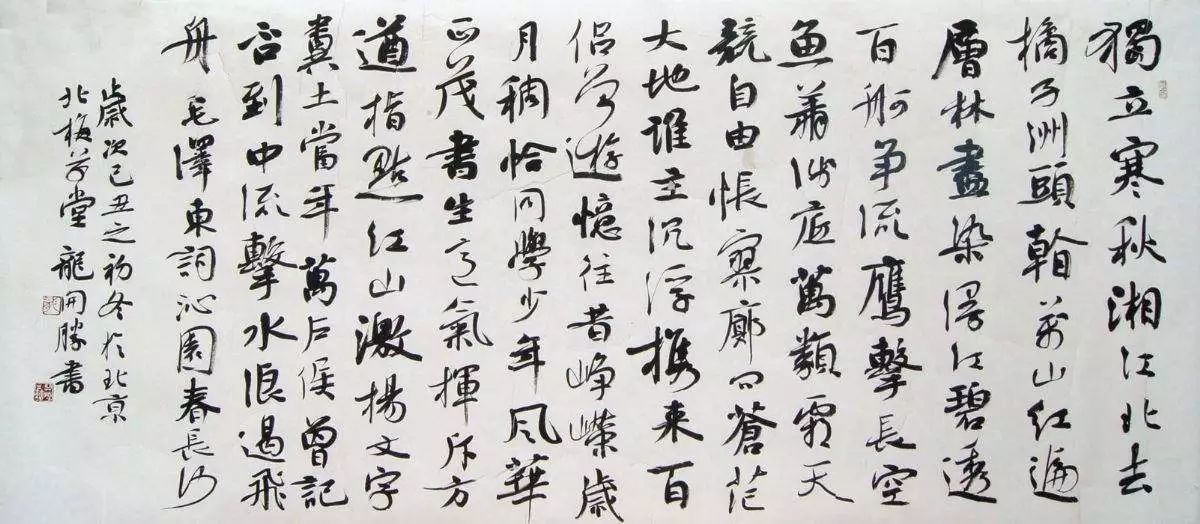 獨立寒秋湘江北去
橘子洲頭看萬山红遍
層林盡染漫江碧透
百舸争流鷹擊長空
魚翔淺底萬類霜天
競自由悵寥廓问蒼茫
大地誰主沉浮携来百
侣曾遊憶往昔崢嶸歲
月稠恰同學少年風華
正茂書生意氣揮斥方
遒指點江山激揚文字
糞土當年萬户侯曾記
否到中流擊水浪遏飛
舟 毛澤東詞沁園春長沙
歲次己丑之初冬於北京
北梅草堂 龍開勝書